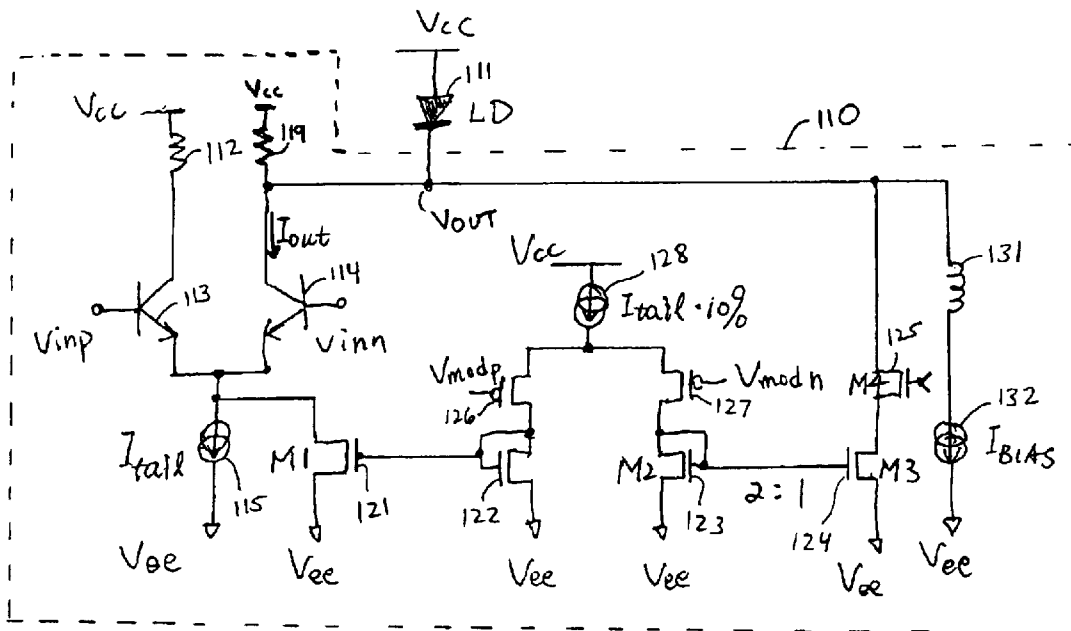 Vcc
111
LD
110
Vcc
112
Vcc
119
VOUT
Iout
113
114
Vinp
Vinn
Vcc
128
Itail·10%
131
125
Vmodp
126
Vmodn
127
M4
132
IBIAS
Itail
115
M1
121
122
M2
123
2:1
M3
124
Vee
Vee
Vee
Vee
Vee
Vee